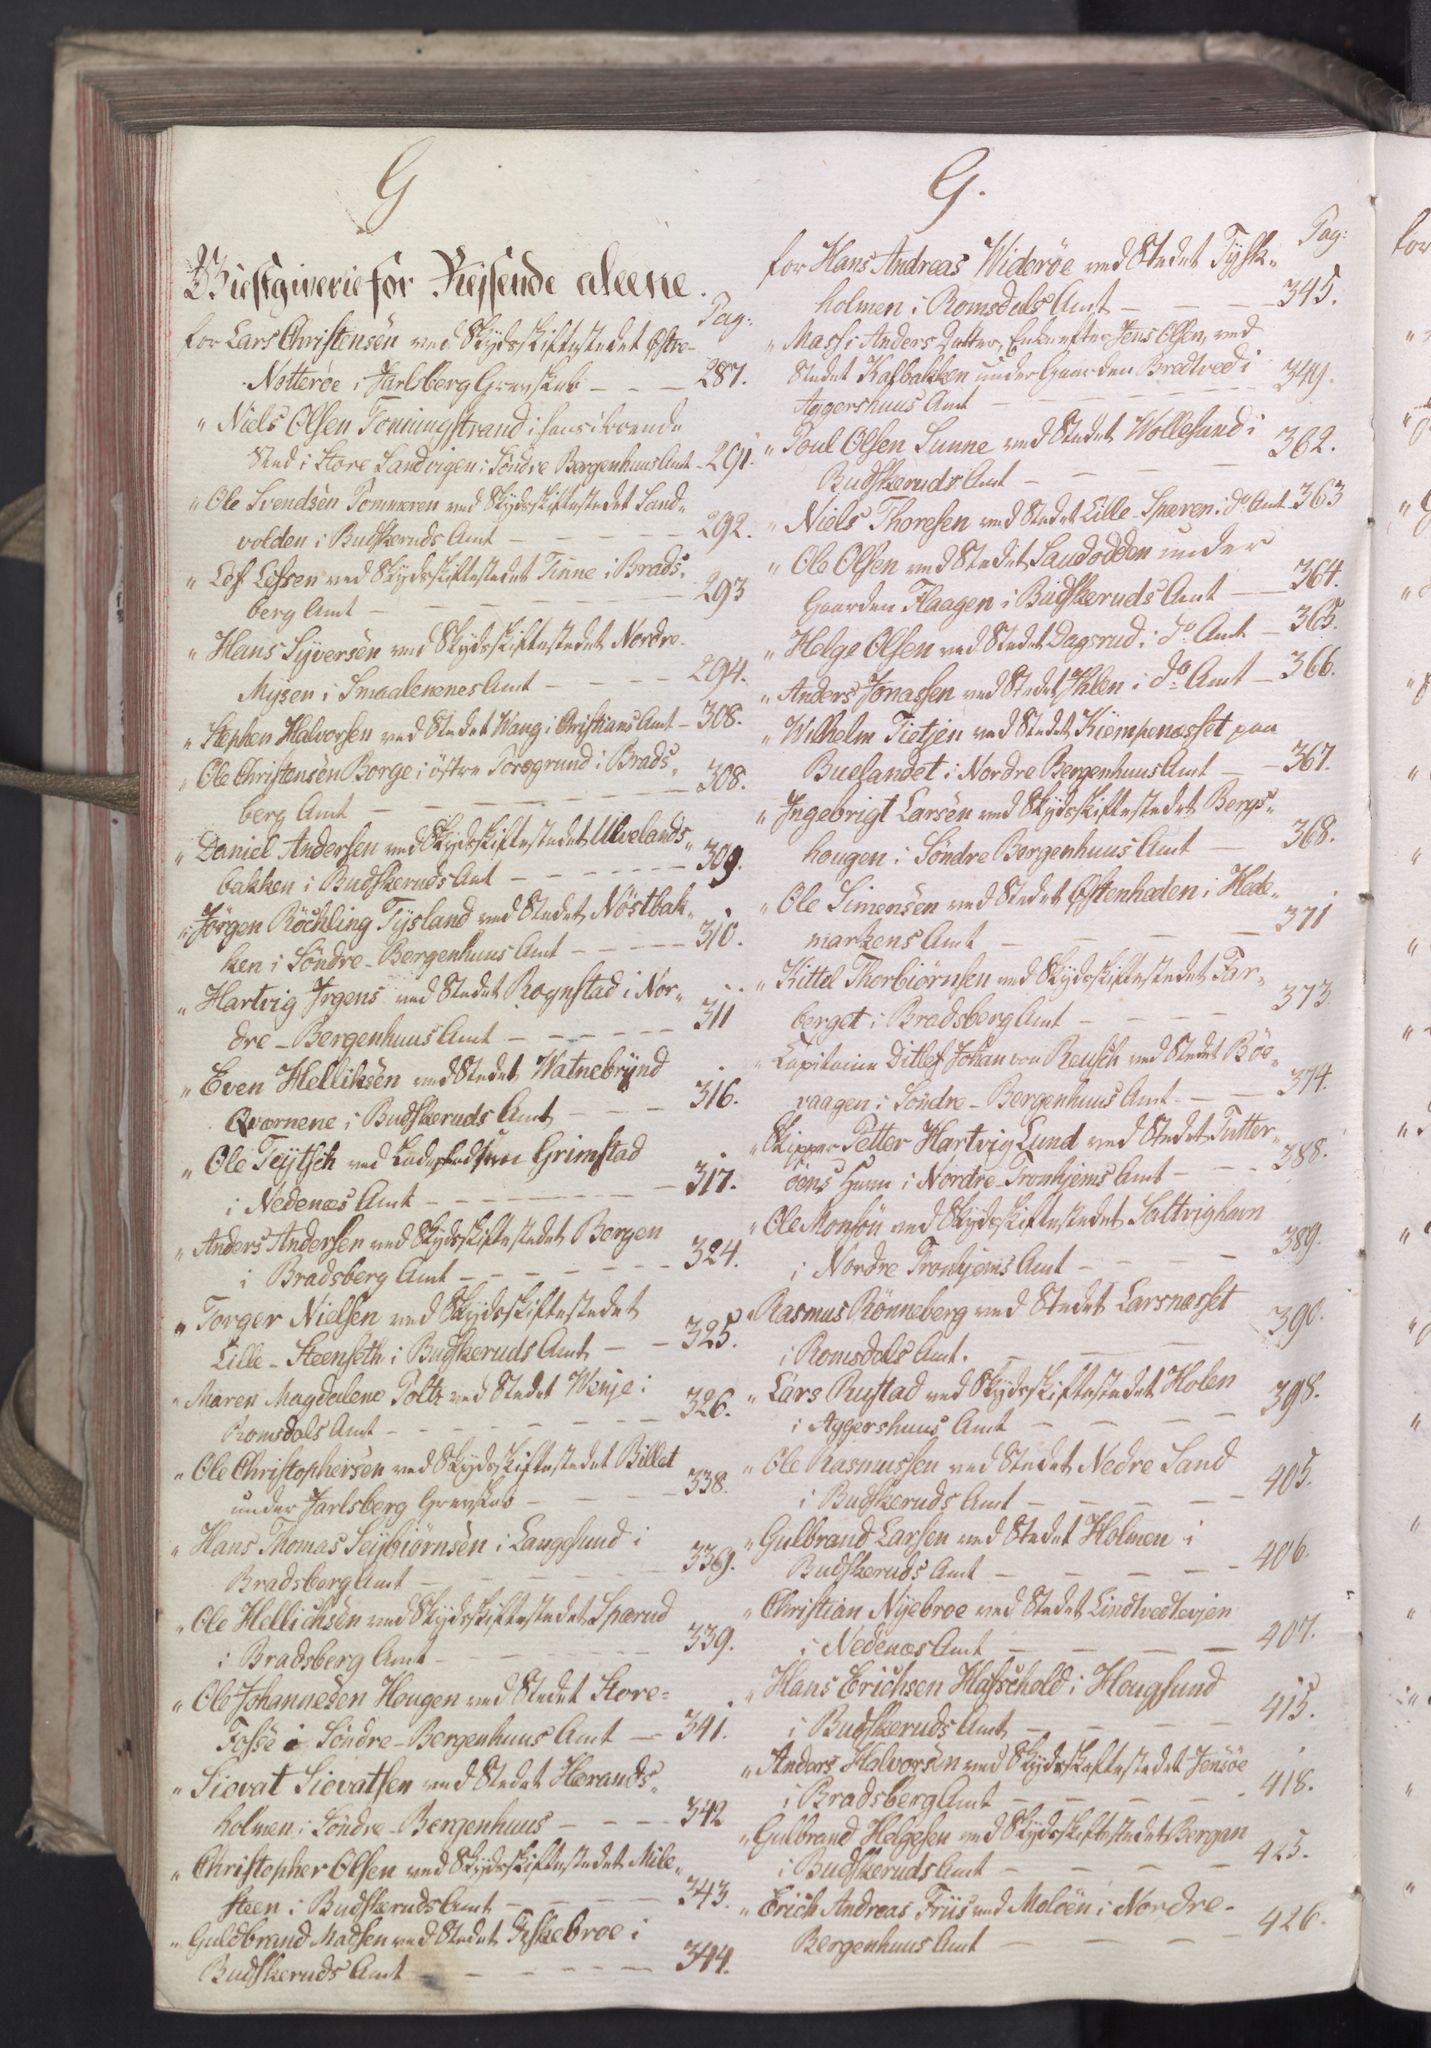 G
Giestgiverie for Reÿsende aleene.
Pag:
for Lars Christensen ved Skydsskiftestedet Østre-
Nøtterøe i Jarlsberg Grevskab - - - 287.
" Niels Olsen Tonningstrand i hans iboende
Sted i Store Sandvigen i Söndre Bergenhuus Amt - 291.
" Ole Svendsen Pommeren ved Skydsskiftestedet Sand-
volden i Budskeruds Amt - - - - - 292.
" Lef Lefsen ved Skydsskiftestedet Tinne i Brads-
berg Amt - - - - - - - - 293
" Hans Syversen ved Skydsskiftestedet Nordre-
Mysen i Smaalenenes Amt - - - - 294.
" Stephen Halvorsen ved Stedet Wang i Christians Amt - 308.
" Ole Christensen Borge i östre Porsgrund i Brads-
berg Amt - - - - - - - - 308.
" Daniel Andersen ved Skydsskiftestedet Ulvelands-
bakken i Budskeruds Amt - - - - - - 309.
" Jörgen Röchling Tysland ved Stedet Nöstbak-
ken i Söndre-Bergenhuus Amt - - - - - 310.
" Hartvig Irgens ved Stedet Rognstad i Nor-
dre-Bergenhuus Amt - - - - - - 311
" Even Helliksen ved Stedet Watnebrynd
Qværnene i Budskeruds Amt - - - - 316.
" Ole Teytsch ved Grimstad
i Nedenæs Amt - - - - - - - - 317.
" Anders Andersen ved Skydsskiftestedet Borgen
i Bradsberg Amt - - - - - - - 324.
" Torger Nielsen ved Skydsskiftestedet
Lille-Steenseth i Budskeruds Amt - - 325.
" Maren Magdalene Poltz ved Stedet Wenje i
Romsdals Amt - - - - - - - - 326.
" Ole Christophersen ved Skydsskiftestedet Billet
under Jarlsberg Grevskab - - - - - 338.
" Hans Thomas Seybiörnsen i Langesund i
Bradsberg Amt - - - - - - - 339.
" Ole Hellichsen ved Skydsskiftestedet Sparud
i Bradsberg Amt - - - - - - 339.
" Ole Johannesen Hougen ved Stedet Store-
Fosse i Söndre-Bergenhuus Amt - 341.
" Siovat Siovatsen ved Stedet Herands-
holmen i Söndre-Bergenhuus - - - - 342
" Christopher Olsen ved Skydsskiftestedet Mile-
steen i Budskeruds Amt - - - - - 343.
" Guldbrand Madsen ved Stedet Fiskebroe i
Budskeruds Amt - - - - - - 344.
G.
Pag:
for Hans Andreas Widerøe ved Stedet Tysk-
holmen i Romsdals Amt - - - - 345.
" Massi Anders Datter, Enke efter Jens Olsen, ved
Stedet Kalbakken under Gaarden Bredtved i
Aggershuus Amt - - - - - - 349.
" Poul Olsen Sunne ved Stedet Wollesund i
Budskeruds Amt - - - - - 362.
" Niels Thoresen ved Stedet Lille-Spæren i do Amt - 363
" Ole Olsen ved Stedet Sandodden under
Gaarden Flaagen i Budskeruds Amt - - 364.
" Helge Olsen ved Stedet Dagsrud i do Amt - 365.
" Anders Jonassen ved Stedet Ihlen i do Amt - 366.
" Wilhelm Tietjen ved Stedet Kiempenæsset paa
Buelandet i Nordre Bergenhuus Amt - - 367.
" Ingebrigt Larsen ved Skydsskiftestedet Bergs-
hougen i Söndre Bergenhuus Amt - 368.
" Ole Simensen ved Stedet Østenheden i Hede-
markens Amt - - - - - - 371
" Kittel Thorbiörnsen ved Skydsskiftestedet Far-
berget i Bradsberg Amt - - - - 373.
" Capitaine Ditlef Johan von Reusch ved Stedet Böe-
vaagen i Söndre-Bergenhuus Amt - - - 374.
" Skipper Petter Hartvig Lund ved Stedet Tutter-
öens Havn i Nordre-Tronhjems Amt - - - 388.
" Ole Monsön ved Skydsskiftestedet Saltvighavn
i Nordre Tronhjems Amt - - - - 389.
" Rasmus Rönneberg ved Stedet Larsnæsset
i Romsdals Amt. - - - - 390.
" Lars Rustad ved Skydsskiftestedet Holen
i Aggershuus Amt - - - - 398.
" Ole Rasmussen ved Stedet Nedre Sand
i Budskeruds Amt - - - - - 405.
" Gulbrand Larsen ved Stedet Holmen i
Budskeruds Amt - - - - - 406.
" Christian Nyebroe ved Stedet Lindtvedtevjen
i Nedenæs Amt - - - - - 407.
" Hans Erichsen Hafschold i Hougsund
i Budskeruds Amt - - - - - 415.
" Anders Halvorsen ved Skydsskiftestedet Jonsöe
i Bradsberg Amt - - - - - 418.
" Gulbrand Helgesen ved Skydsskiftestedet Bergan
i Budskeruds Amt - - - - - 425.
" Erich Andreas Friis ved Molöen i Nordre-
Bergenhuus Amt - - - - - 426.